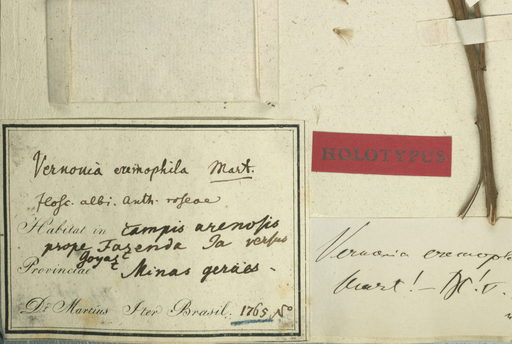 Vernonia eremophila Mart.
Flosc. albi. Anth. roseae
Habitat in campis arenosis
prope Fazenda Sa versus
Goyaz
Provinciae Minas geraes.
Dr Martius Iter Brasil. 1765. No
HOLOTYPUS
Vernonia eremophi
Mart! - DC!